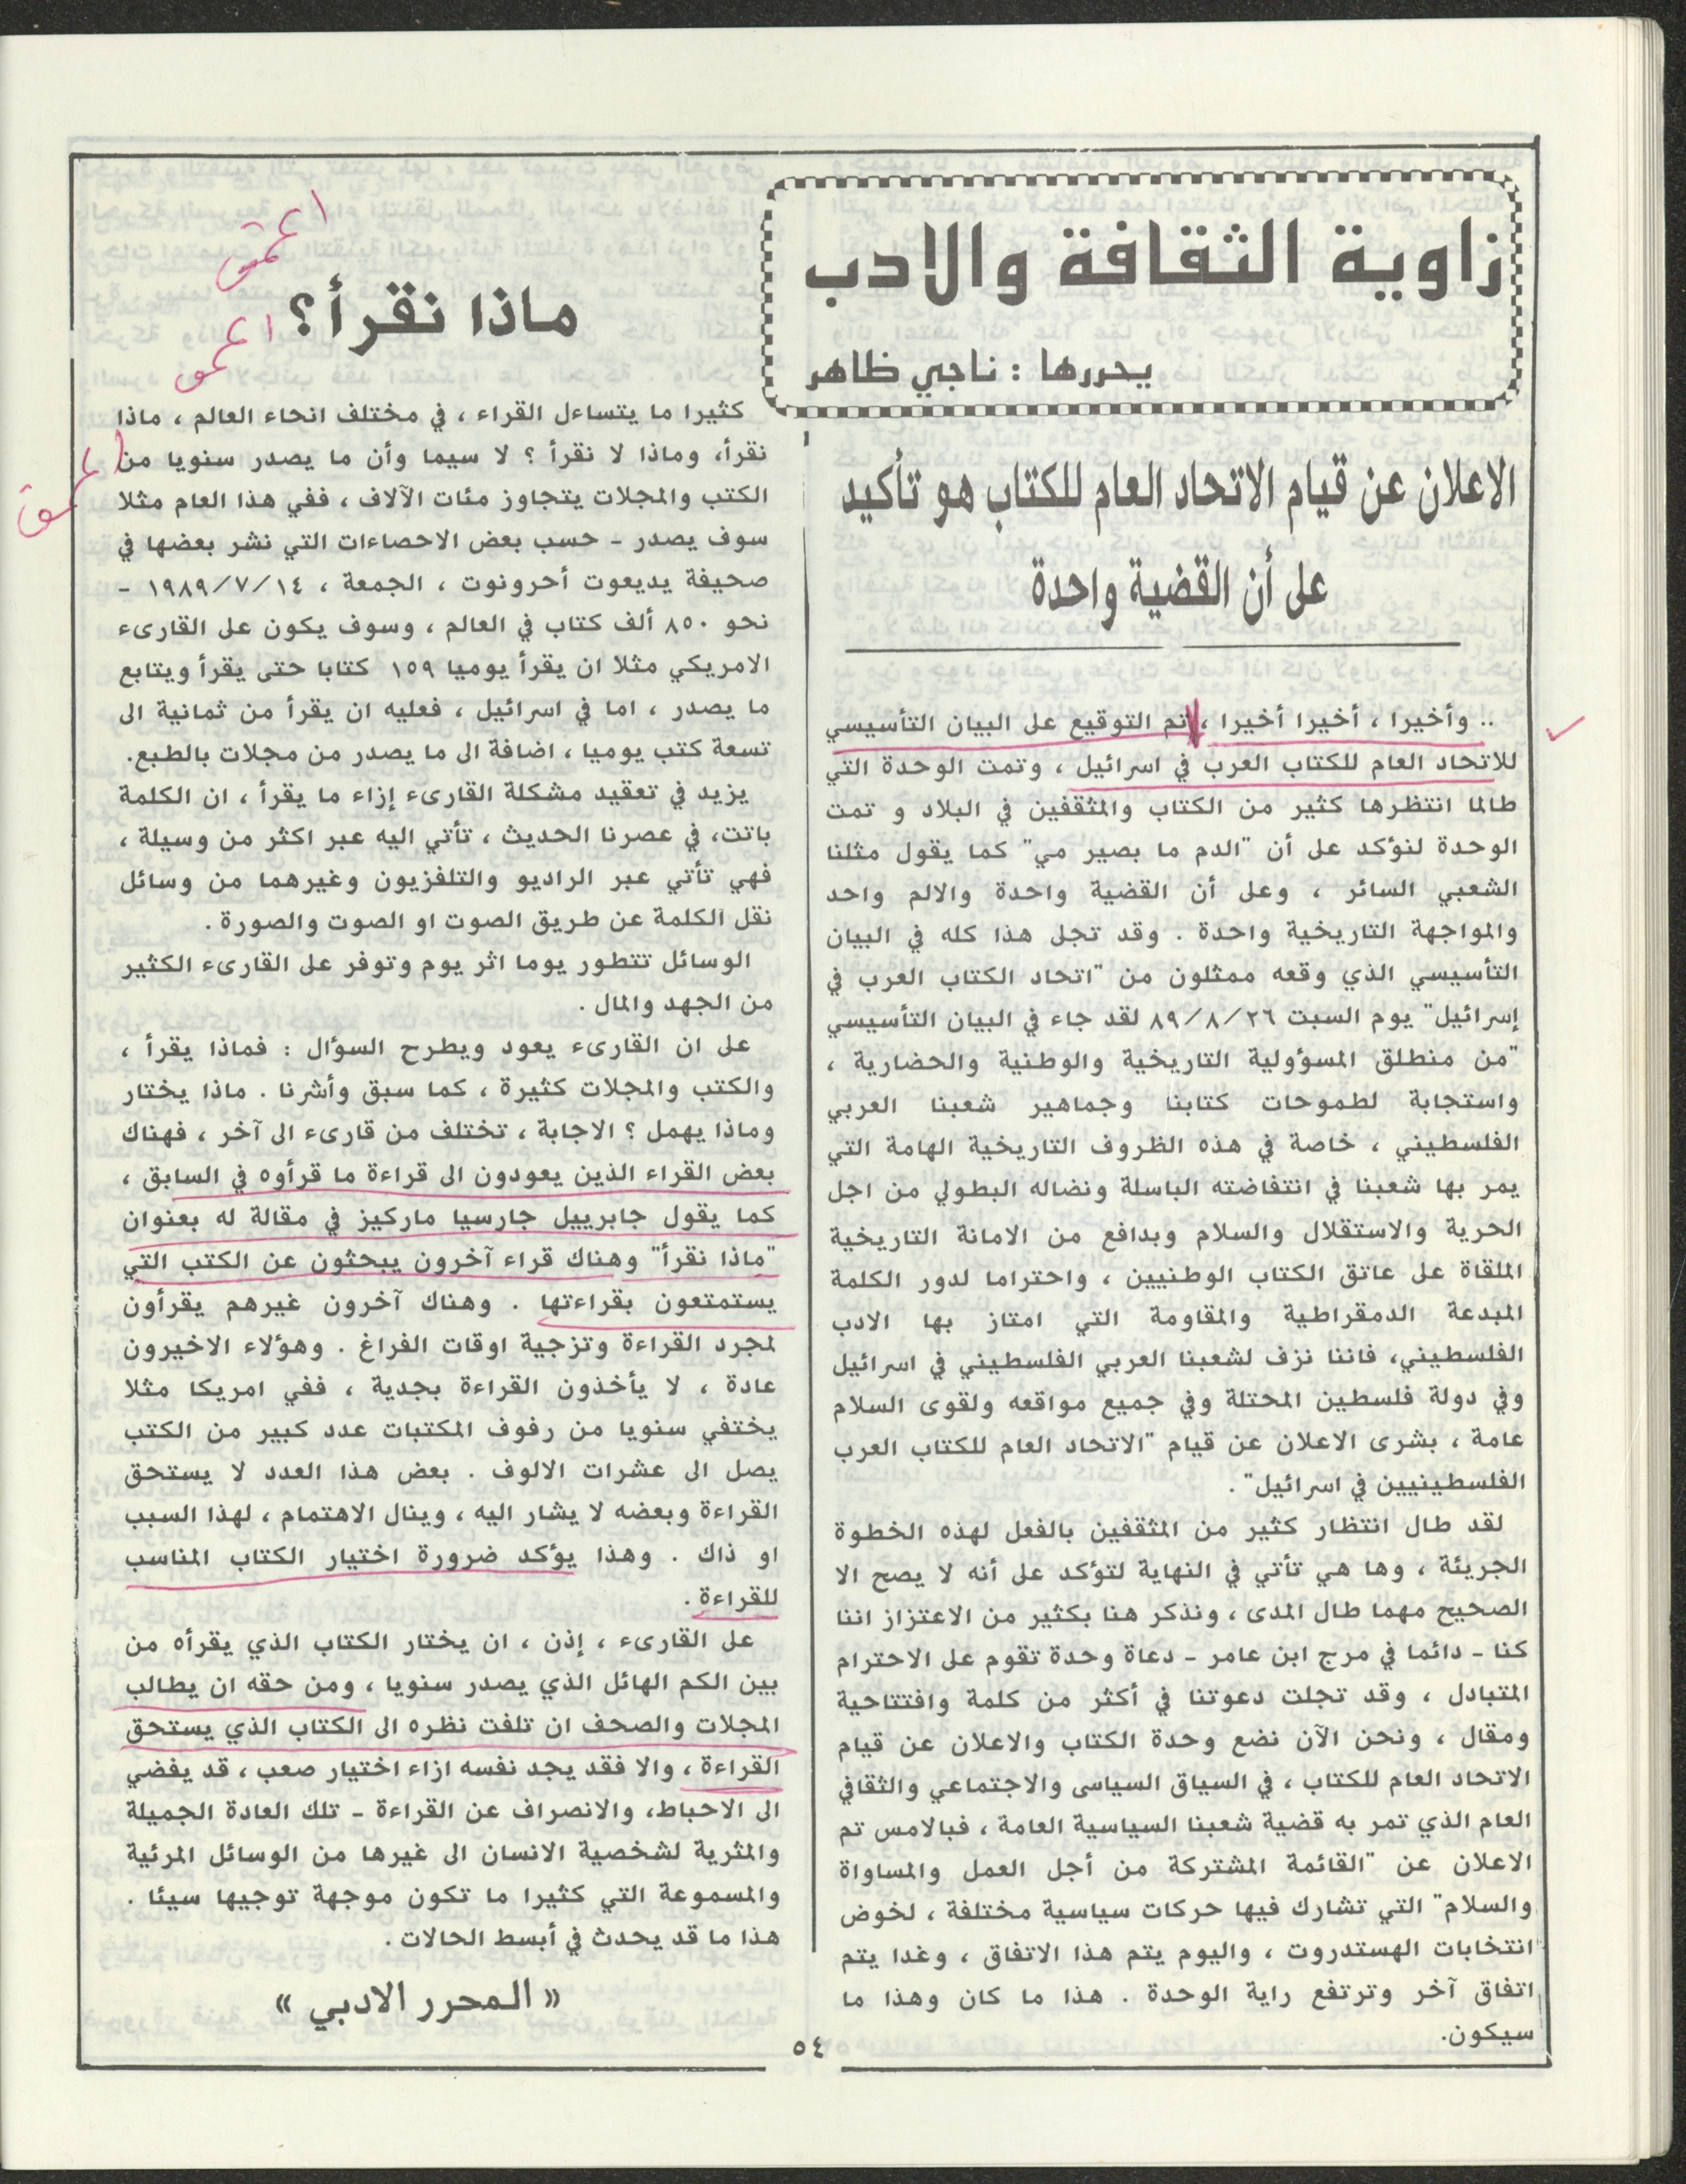 زاوية الثقافة والادب
يحررها : ناجي ظاهر
الاعلان عن قيام الاتحاد العام للكتاب هو تأكيد
على أن القضية واحدة
.. وأخيرا ، أخيرا أخيرا ، تم التوقيع على البيان التأسيسي
للاتحاد العام للكتاب العرب في اسرائيل ، وتمت الوحدة التي
طالما انتظرها كثير من الكتاب والمثقفين في البلاد و تمت
الوحدة لنؤكد على أن "الدم ما بصير مي" كما يقول مثلنا
الشعبي السائر ، وعلى أن القضية واحدة والالم واحد
والمواجهة التاريخية واحدة . وقد تجلى هذا كله في البيان
التأسيسي الذي وقعه ممثلون من "اتحاد الكتاب العرب في
إسرائيل" يوم السبت ٨٩/٨/٢٦ لقد جاء في البيان التأسيسي
"من منطلق المسؤولية التاريخية والوطنية والحضارية ،
واستجابة لطموحات كتابنا وجماهير شعبنا العربي
الفلسطيني ، خاصة في هذه الظروف التاريخية الهامة التي
يمر بها شعبنا في انتفاضته الباسلة ونضاله البطولي من اجل
الحرية والاستقلال والسلام وبدافع من الامانة التاريخية
الملقاة على عاتق الكتاب الوطنيين ، واحتراما لدور الكلمة
المبدعة الدمقراطية والمقاومة التي امتاز بها الادب
الفلسطيني، فاننا نزف لشعبنا العربي الفلسطيني في اسرائيل
وفي دولة فلسطين المحتلة وفي جميع مواقعه ولقوى السلام
عامة ، بشرى الاعلان عن قيام "الاتحاد العام للكتاب العرب
الفلسطينيين في اسرائيل" .
لقد طال انتظار كثير من المثقفين بالفعل لهذه الخطوة
الجريئة ، وها هي تأتي في النهاية لتؤكد على أنه لا يصح الا
الصحيح مهما طال المدى ، ونذكر هنا بكثير من الاعتزاز اننا
كنا - دائما في مرج ابن عامر - دعاة وحدة تقوم على الاحترام
المتبادل ، وقد تجلت دعوتنا في أكثر من كلمة وافتتاحية
ومقال ، ونحن الآن نضع وحدة الكتاب والاعلان عن قيام
الاتحاد العام للكتاب ، في السياق السياسى والاجتماعي والثقافي
العام الذي تمر به قضية شعبنا السياسية العامة ، فبالامس تم
الاعلان عن "القائمة المشتركة من أجل العمل والمساواة
والسلام" التي تشارك فيها حركات سياسية مختلفة ، لخوض
انتخابات الهستدروت ، واليوم يتم هذا الاتفاق ، وغدا يتم
اتفاق آخر وترتفع راية الوحدة . هذا ما كان وهذا ما
سيكون.
ماذا نقرأ؟
كثيرا ما يتساءل القراء ، في مختلف انحاء العالم ، ماذا
نقرأ، وماذا لا نقرأ ؟ لا سيما وأن ما يصدر سنويا من
الكتب والمجلات يتجاوز مئات الآلاف ، ففي هذا العام مثلا
سوف يصدر - حسب بعض الاحصاءات التي نشر بعضها في
صحيفة يديعوت أحرونوت ، الجمعة ، ١٩٨٩/٧/١٤ -
نحو ٨٥٠ ألف كتاب في العالم ، وسوف يكون على القارىء
الامريكي مثلا ان يقرأ يوميا ١٥٩ كتابا حتى يقرأ ويتابع
ما يصدر ، اما في اسرائيل ، فعليه ان يقرأ من ثمانية الى
تسعة كتب يوميا ، اضافة الى ما يصدر من مجلات بالطبع.
يزيد في تعقيد مشكلة القارىء إزاء ما يقرأ ، ان الكلمة
باتت، في عصرنا الحديث ، تأتي اليه عبر اكثر من وسيلة ،
فهي تأتي عبر الراديو والتلفزيون وغيرهما من وسائل
نقل الكلمة عن طريق الصوت او الصوت والصورة .
الوسائل تتطور يوما اثر يوم وتوفر على القارىء الكثير
من الجهد والمال .
على ان القارىء يعود ويطرح السؤال : فماذا يقرأ ،
والكتب والمجلات كثيرة ، كما سبق وأشرنا . ماذا يختار
وماذا يهمل ؟ الاجابة ، تختلف من قارىء الى آخر ، فهناك
بعض القراء الذين يعودون الى قراءة ما قرأوه في السابق ،
كما يقول جابرييل جارسيا ماركيز في مقالة له بعنوان
"ماذا نقرأ" وهناك قراء آخرون يبحثون عن الكتب التي
يستمتعون بقراءتها . وهناك آخرون غيرهم يقرأون
لمجرد القراءة وتزجية اوقات الفراغ . وهؤلاء الاخيرون
عادة ، لا يأخذون القراءة بجدية ، ففي امريكا مثلا
يختفي سنويا من رفوف المكتبات عدد كبير من الكتب
يصل الى عشرات الالوف . بعض هذا العدد لا يستحق
القراءة وبعضه لا يشار اليه ، وينال الاهتمام ، لهذا السبب
او ذاك . وهذا يؤكد ضرورة اختيار الكتاب المناسب
للقراءة .
على القارىء ، إذن ، ان يختار الكتاب الذي يقرأه من
بين الكم الهائل الذي يصدر سنويا ، ومن حقه ان يطالب
المجلات والصحف ان تلفت نظره الى الكتاب الذي يستحق
القراءة ، والا فقد يجد نفسه ازاء اختيار صعب ، قد يفضي
الى الاحباط، والانصراف عن القراءة - تلك العادة الجميلة
والمثرية لشخصية الانسان الى غيرها من الوسائل المرئية
والمسموعة التي كثيرا ما تكون موجهة توجيها سيئا .
هذا ما قد يحدث في أبسط الحالات .
« المحرر الادبي »
٥٤